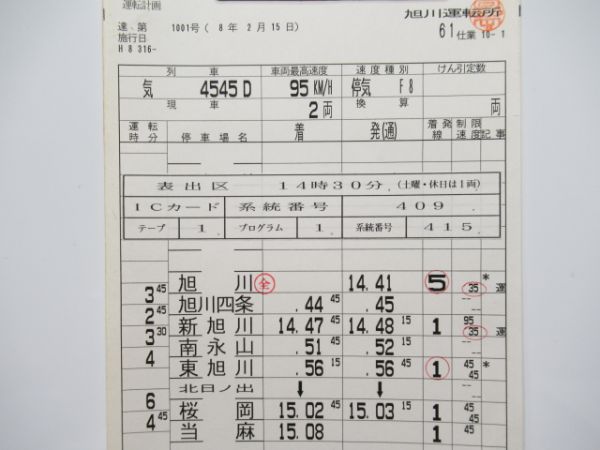 運転計画
達、第 1001号 ( 8 年 2 月 15 日)
旭川運転所
施行日
61 仕業 10-1
H 8 316-
列 車 車両最高速度 速度種別 けん引定数
気 4545D 95 KM/H 停気 F8
現 車 2両 換 算 両
運転時分 停車場名 着 発(通) 着発線 制限速度 記事
表出区 14時30分. (土曜・休日は1両)
ICカード 系統番号 409
テープ 1 プログラム 1. 系統番号 415
旭 川 全 14.41 5 35 * 運
3 45
旭川四条 .44 45 .45
2 45
新旭川 14.47 45 14.48 15 1 95 35 運
3 30
南永山 .51 45 .52 15
4
東旭川 .56 15 .56 45 1 45 45 *
北日ノ出 ↓ ↓
6
桜 岡 15.02 45 15.03 15 1 45 45
4 45
当 麻 15.08 1 45